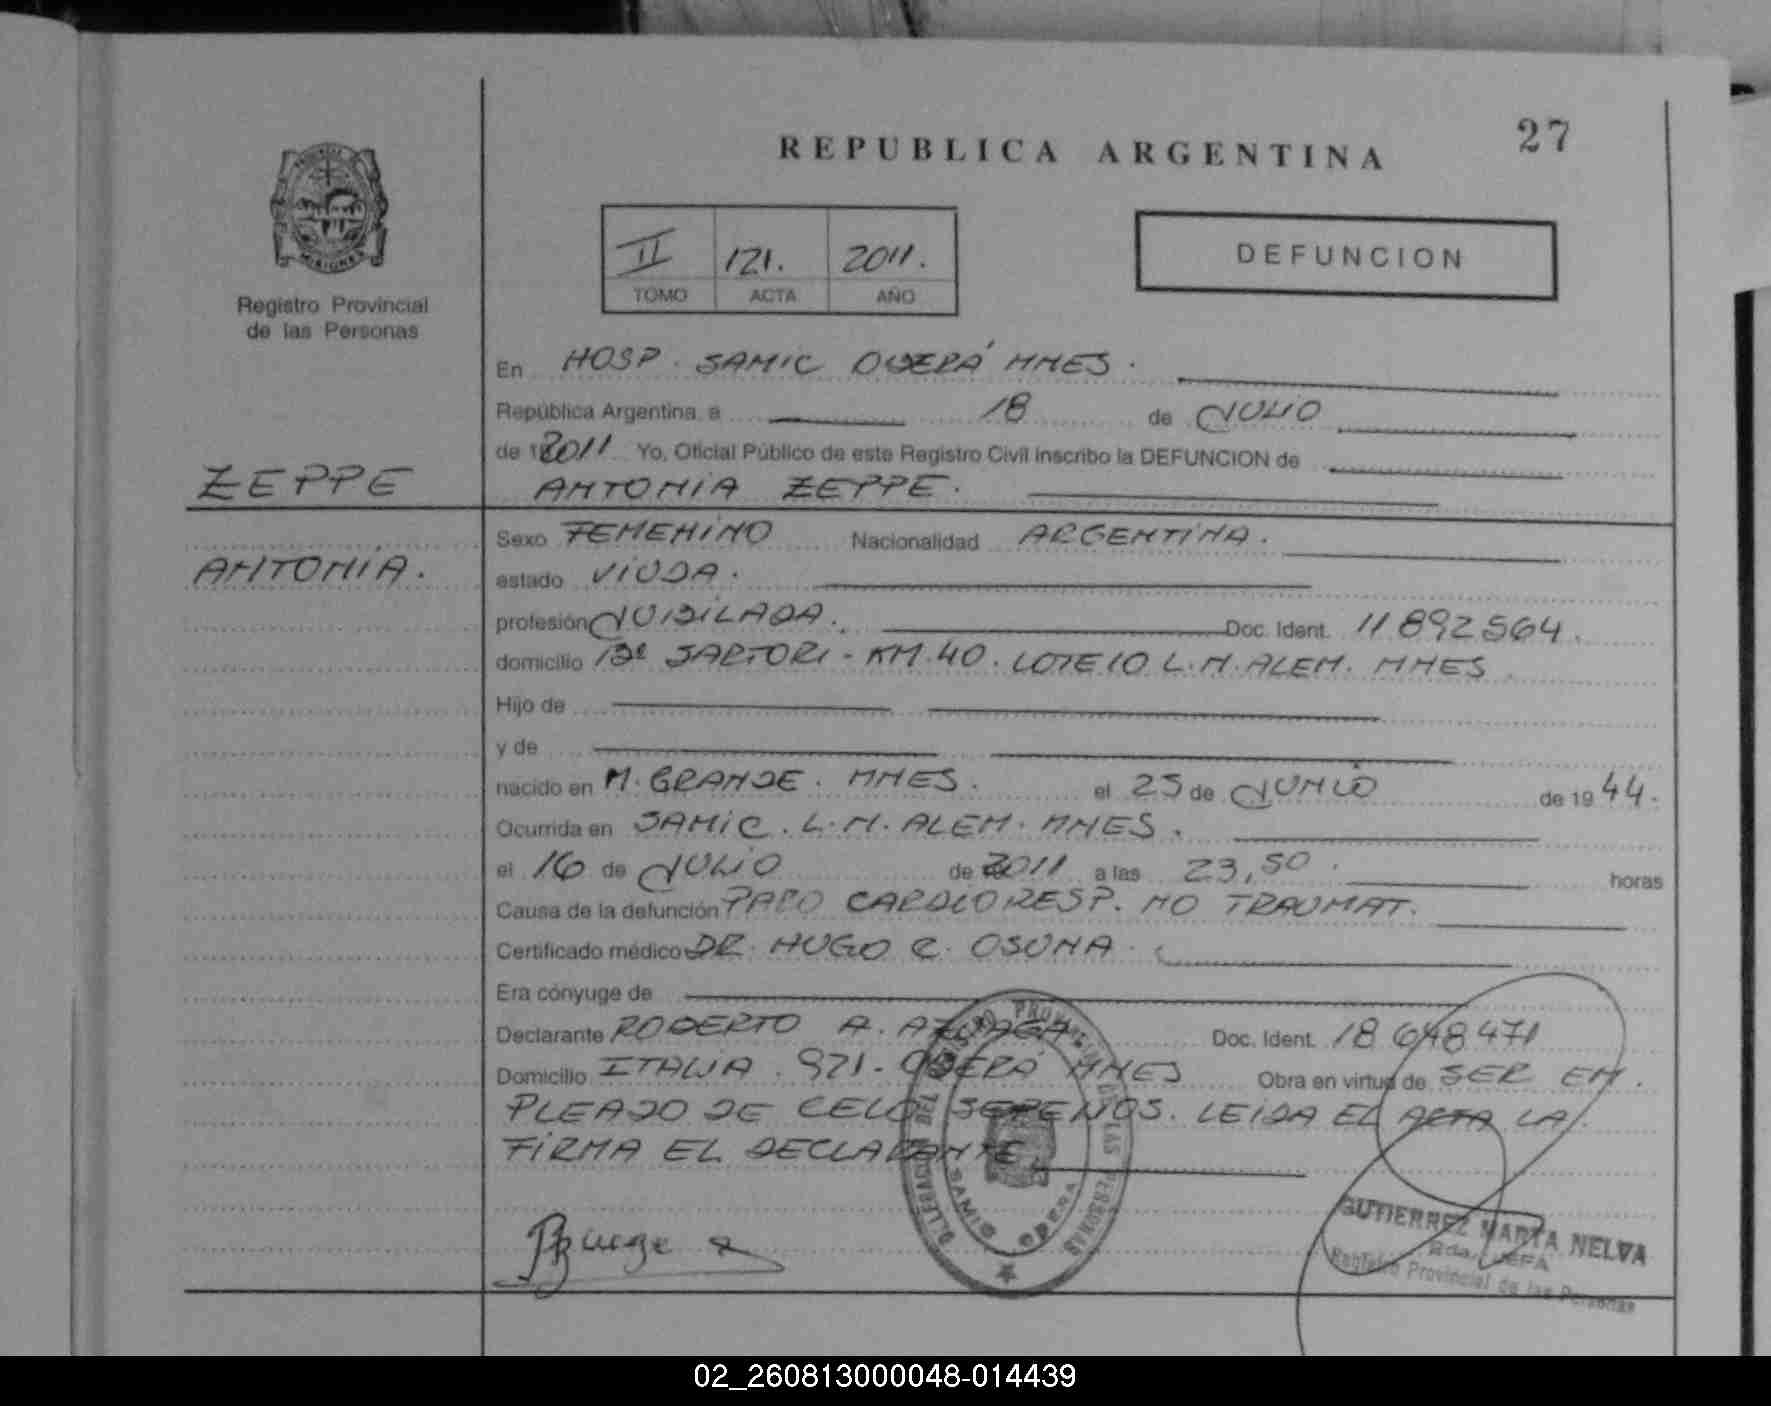 27
REPUBLICA ARGENTINA
II 121. 2011.
TOMO ACTA AÑO
DEFUNCION
MISIONES
Registro Provincial
de las Personas
En HOSP. SAMIC OBERÁ MNES.
República Argentina, a 18 de JULIO
de 2011 Yo, Oficial Público de este Registro Civil inscribo la DEFUNCION de
ZEPPE
ANTONIA ZEPPE.
Sexo FEMENINO Nacionalidad ARGENTINA.
ANTONIA.
estado VIUDA.
profesión JUBILADA. Doc. Ident. 11 892564.
domicilio Bº SARTORI - KM.40. LOTE 10 L.N.ALEM. MNES
Hijo de
y de
nacido en M. GRANDE. MNES. el 25 de JUNIO de 19 44.
Ocurrida en SAMIC. L.N. ALEM. MNES.
el 16 de JULIO de 2011 a las 23,50. horas
Causa de la defunción PARO CARDIORESP. NO TRAUMAT.
Certificado médico DR. HUGO C. OSUNA.
Era cónyuge de
Declarante ROBERTO A. AZUAGA Doc. Ident. 18 648471
Domicilio ITALIA. 921. OBERÁ MNES Obra en virtud de SER EM.
PLEADO DE CELU SERENOS. LEIDA EL ACTA LA
FIRMA EL DECLARANTE
SAMIC OBERA
GUTIERREZ MARTA NELVA
Registro Provincial de las Personas
02_260813000048-014439